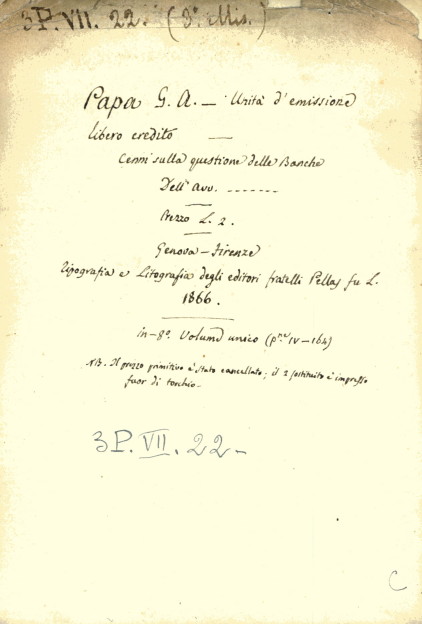 3P. VII. 22. (3ª Mis.)
Papa G. A. — Unità d'emissione
libero credito —
Cenni sulla questione delle Banche
Dell' Avv. .......
Prezzo L. 2.
Genova - Firenze
Tipografia e Litografia degli editori fratelli Pellas fu L.
1866.
in-8º. Volume unico (p.ne IV-164)
NB. Il prezzo primitivo è stato cancellato; il 2 sostituito è impresso
fuor di torchio.
3P. VII. 22-
C